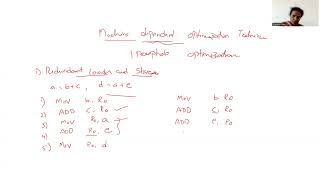 Machine dependent optimization Technique
| Peephole optimization
1) Redundant Loader and Stores
a = b+c, d = a+e
1) Mov b, R0 Mov b, R0
2) ADD c, R0 ADD c, R0
3) Mov R0, a ADD e, R0
4) ADD R0, e
5) Mov R0, d